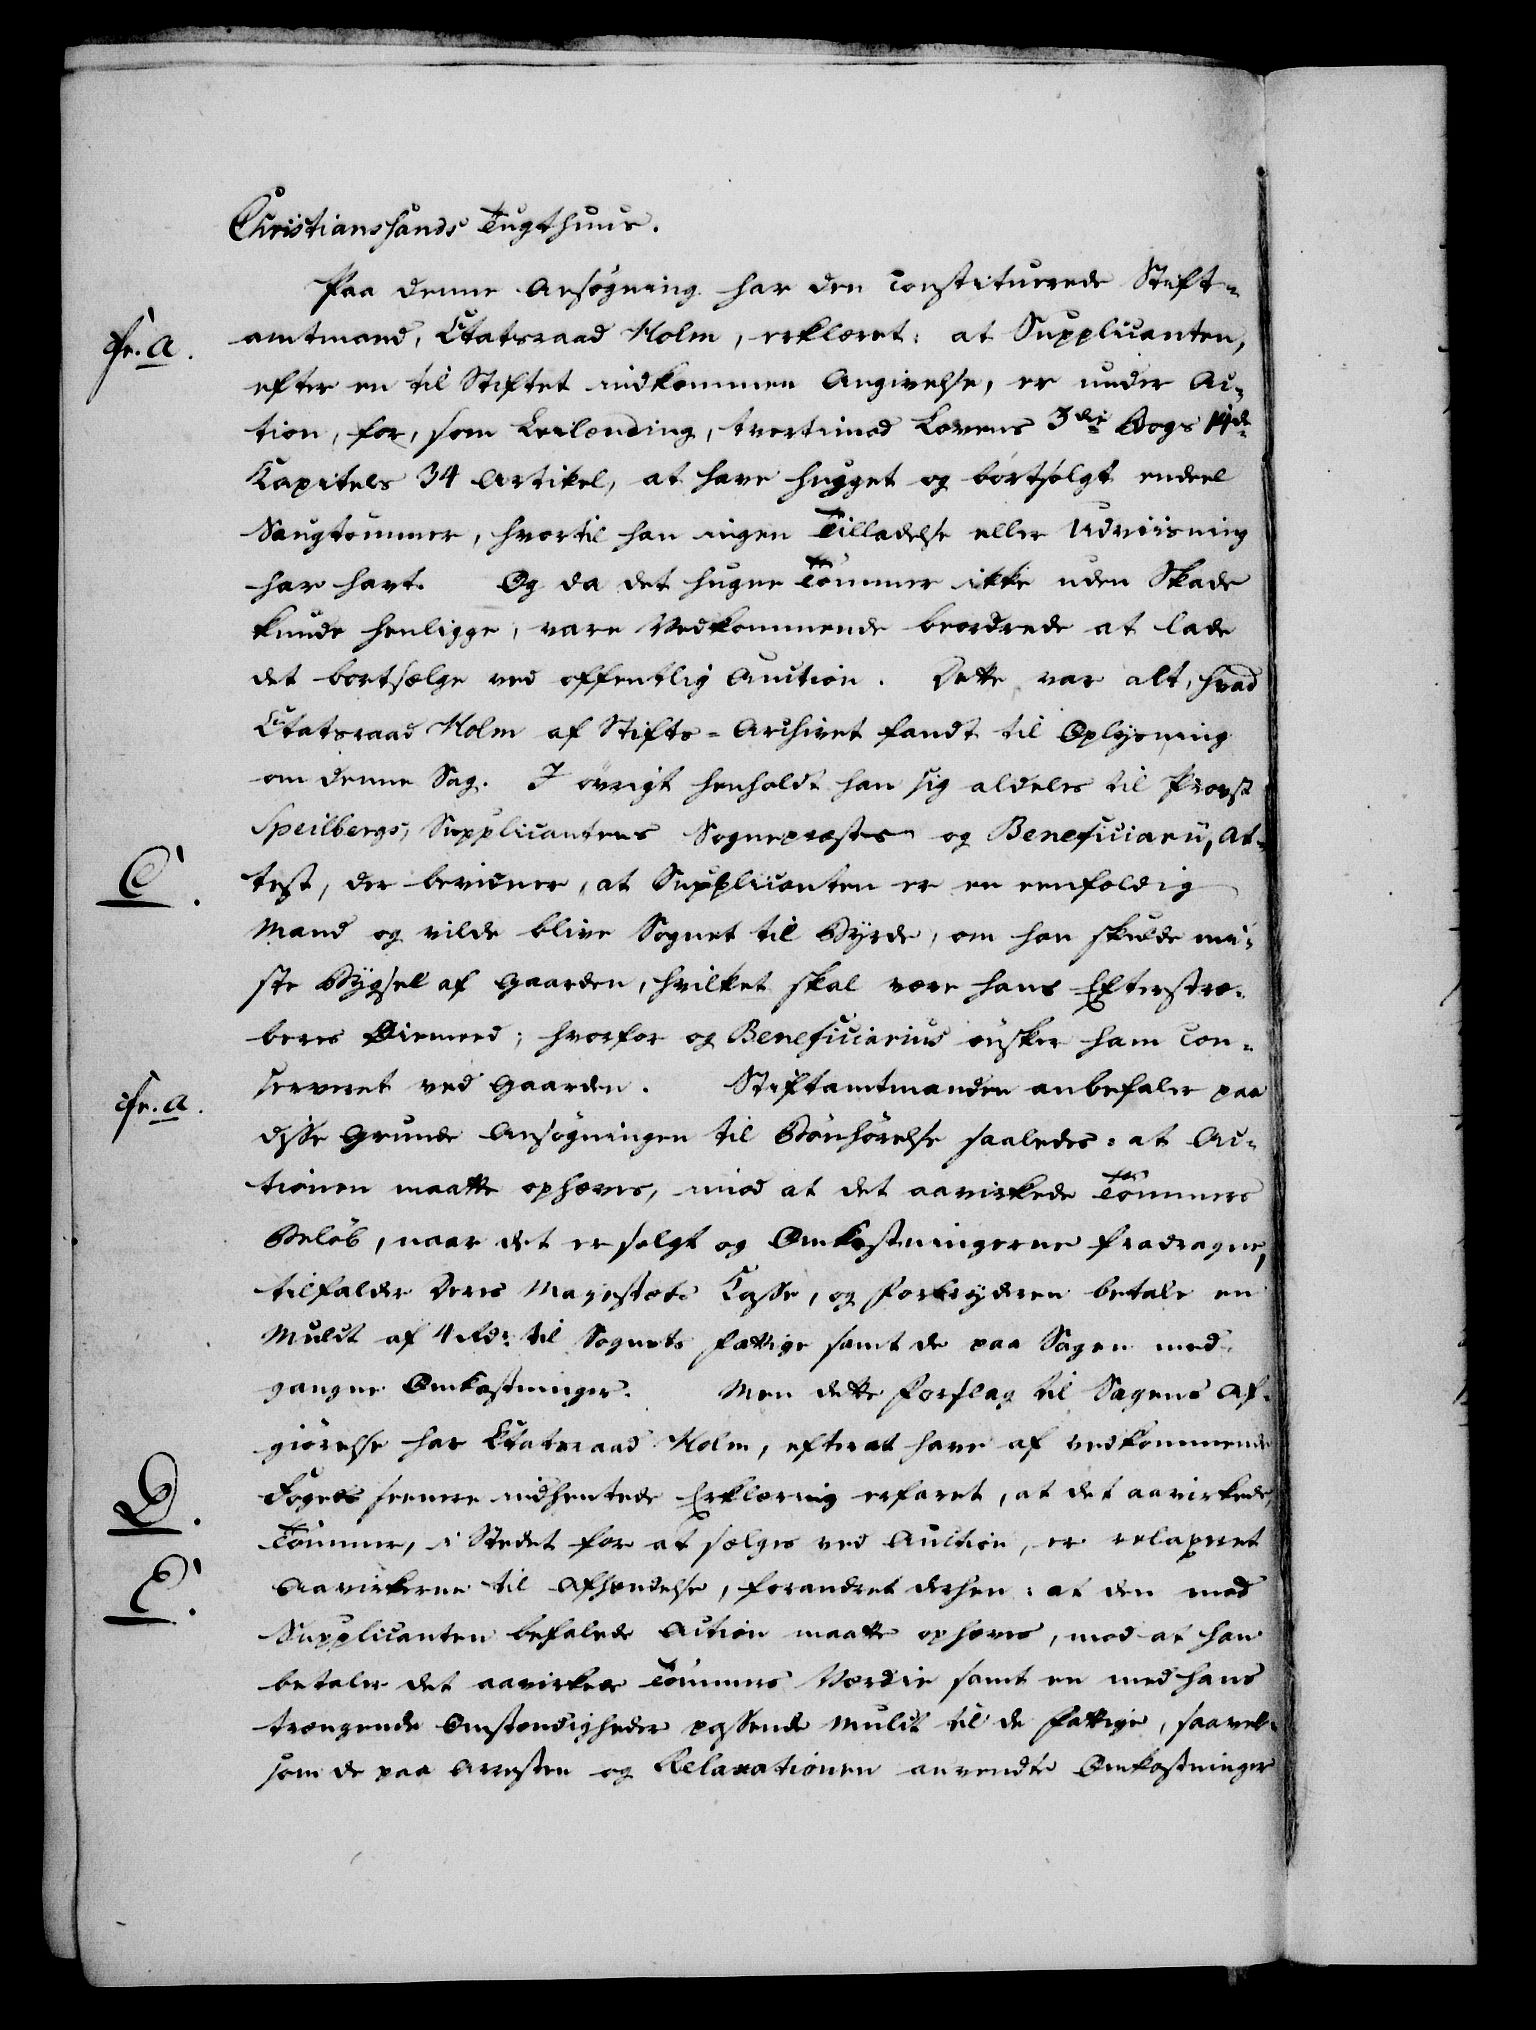 Christianssands Tugthuus.
Paa denne Ansøgning har den constituerede Stift-
cfr. a.
amtmand, Etatsraad Holm, erklæret: at Supplicanten,
efter en til Stiftet indkommen Angivelse, er under Ac-
tion, for, som Leilænding, tvertimod Lovens 3die Bogs 14de
Kapitels 34 Artikel, at have hugget og bortsolgt endeel
Saugtømmer, hvortil han ingen Tilladelse eller Udviisning
har havt. Og da det hugne Tømmer ikke uden Skade
kunde henligge, vare Vedkommende beordrede at lade
det bortsælge ved offentlig Auction. Dette var alt, hvad
Etatsraad Holm af Stifts-Archivet fandt til Oplysning
om denne Sag. I øvrigt henholdt han sig aldeles til Provst
Speilbergs, Supplicantens Sognepræstes og Beneficiarii, At-
C.
test, der bevidner, at Supplicanten er en eenfoldig
Mand og vilde blive Sognet til Byrde, om han skulde mi-
ste Bygsel af Gaarden, hvilket skal være hans Efterstræ-
beres Øiemeed; hvorfor og Beneficiarius ønsker ham con-
cfr. a.
serveret ved Gaarden. Stiftamtmanden anbefaler paa
disse Grunde Ansøgningen til Bønhørelse saaledes: at Ac-
tionen maatte ophæves, imod at det aavirkede Tømmers
Beløb, naar det er solgt og Omkostningerne fradragne,
tilfalder Deres Majestæts Casse, og Forbryderen betale en
Mulct af 4 Rdr. til Sognets Fattige samt de paa Sagen med-
gangne Omkostninger. Men dette Forslag til Sagens Af-
giørelse har Etatsraad Holm, efterat have af vedkommende
D.
Fogeds senere indhentede Erklæring erfaret, at det aavirkede
Tømmer, i Stedet for at sælges ved Auction, er relaxeret
E.
Aavirkerne til Afhændelse, forandret derhen: at den mod
Supplicanten befalede Action maatte ophæves, mod at han
betaler det aavirkede Tømmers Værdie samt en med hans
trængende Omstændigheder passende Mulct til de Fattige, saavel-
som de paa Arresten og Relaxationen anvendte Omkostninger